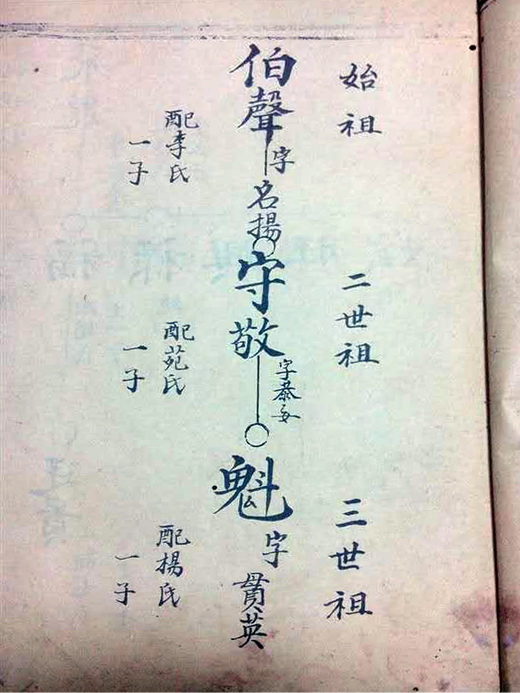 始祖
伯聲
字名揚
配李氏
一子
二世祖
守敬
字恭安
配苑氏
一子
三世祖
魁
字貫英
配楊氏
一子